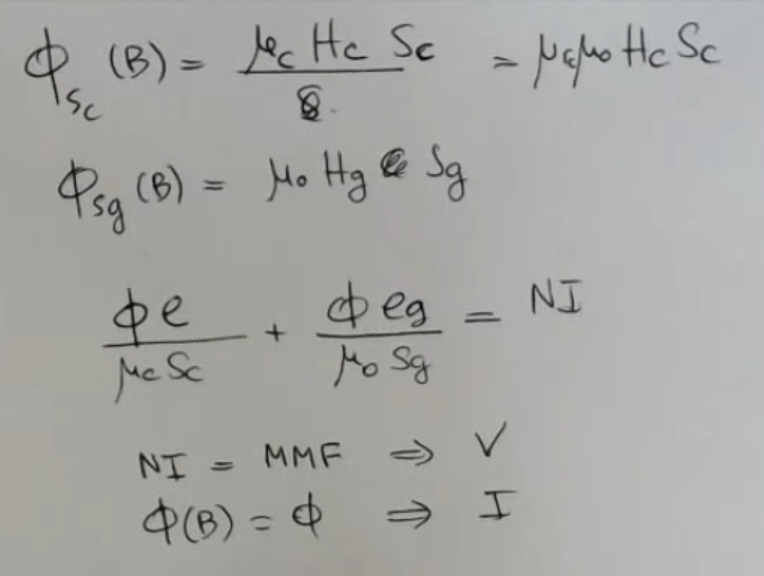 Φ_Sc (B) = μc Hc Sc / 8 = μcμ0 Hc Sc
Φ_Sg (B) = μ0 Hg Sg
Φe / μc Sc + Φeg / μ0 Sg = NI
NI = MMF ⇒ V
Φ(B) = Φ ⇒ I